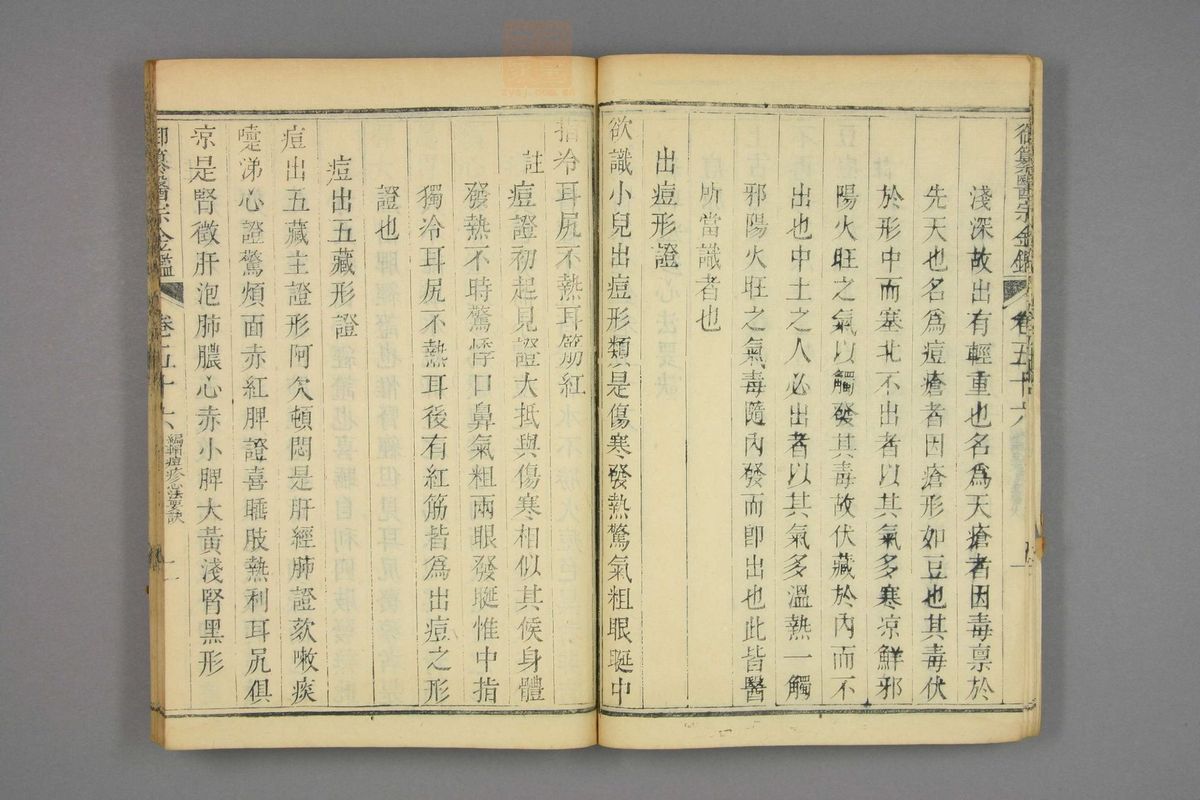 御纂醫宗金鑑 卷五十六
淺深故出有輕重也名爲天瘡者因毒禀於
先天也名爲痘瘡者因瘡形如豆也其毒伏
於形中而塞北不出者以其氣多寒凉鮮邪
陽火旺之氣以觸發其毒故伏藏於內而不
出也中土之人必出者以其氣多溫熱一觸
邪陽火旺之氣毒隨內發而即出也此皆醫
所當識者也
出痘形證
欲識小兒出痘形類是傷寒發熱驚氣粗眼𥆧中
指冷耳尻不熱耳筋紅
註
痘證初起見證大抵與傷寒相似其候身體
發熱不時驚悸口鼻氣粗兩眼發𥆧惟中指
獨冷耳尻不熱耳後有紅筋皆爲出痘之形
證也
痘出五藏形證
痘出五藏主證形阿欠頓悶是肝經肺證欬嗽痰
嚏涕心證驚煩面赤紅脾證喜睡肢熱利耳尻俱
凉是腎徵肝泡肺膿心赤小脾大黃淺腎黑形
御纂醫宗金鑑 卷五十六 編輯痘疹心法要訣